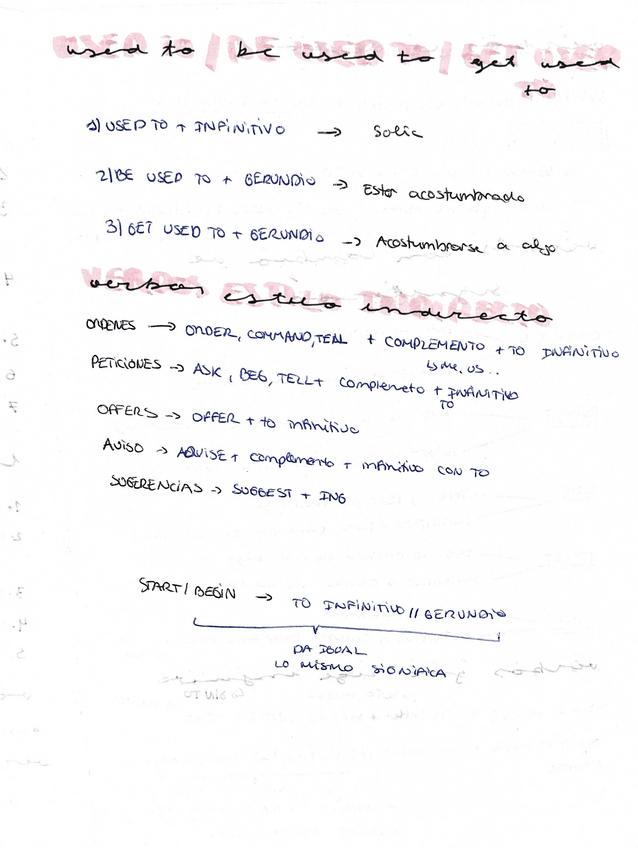 used to / be used to / get used
to
1) USED TO + INFINITIVO → Solía
2) BE USED TO + GERUNDIO → Estar acostumbrado
3) GET USED TO + GERUNDIO → Acostumbrarse a algo
verbos estilo indirecto
ORDENES → ORDER, COMMAND, TEAL + COMPLEMENTO + TO INFINITIVO
↳ me, us..
PETICIONES → ASK, BEG, TELL + complemeto + INFINITIVO
TO
OFFERS → OFFER + to infinitivo
AVISO → ADVISE + complemento + infinitivo CON TO
SUGERENCIAS → SUGGEST + ING
START / BEGIN → TO INFINITIVO // GERUNDIO
DA IGUAL
LO MISMO SIGNIFICA